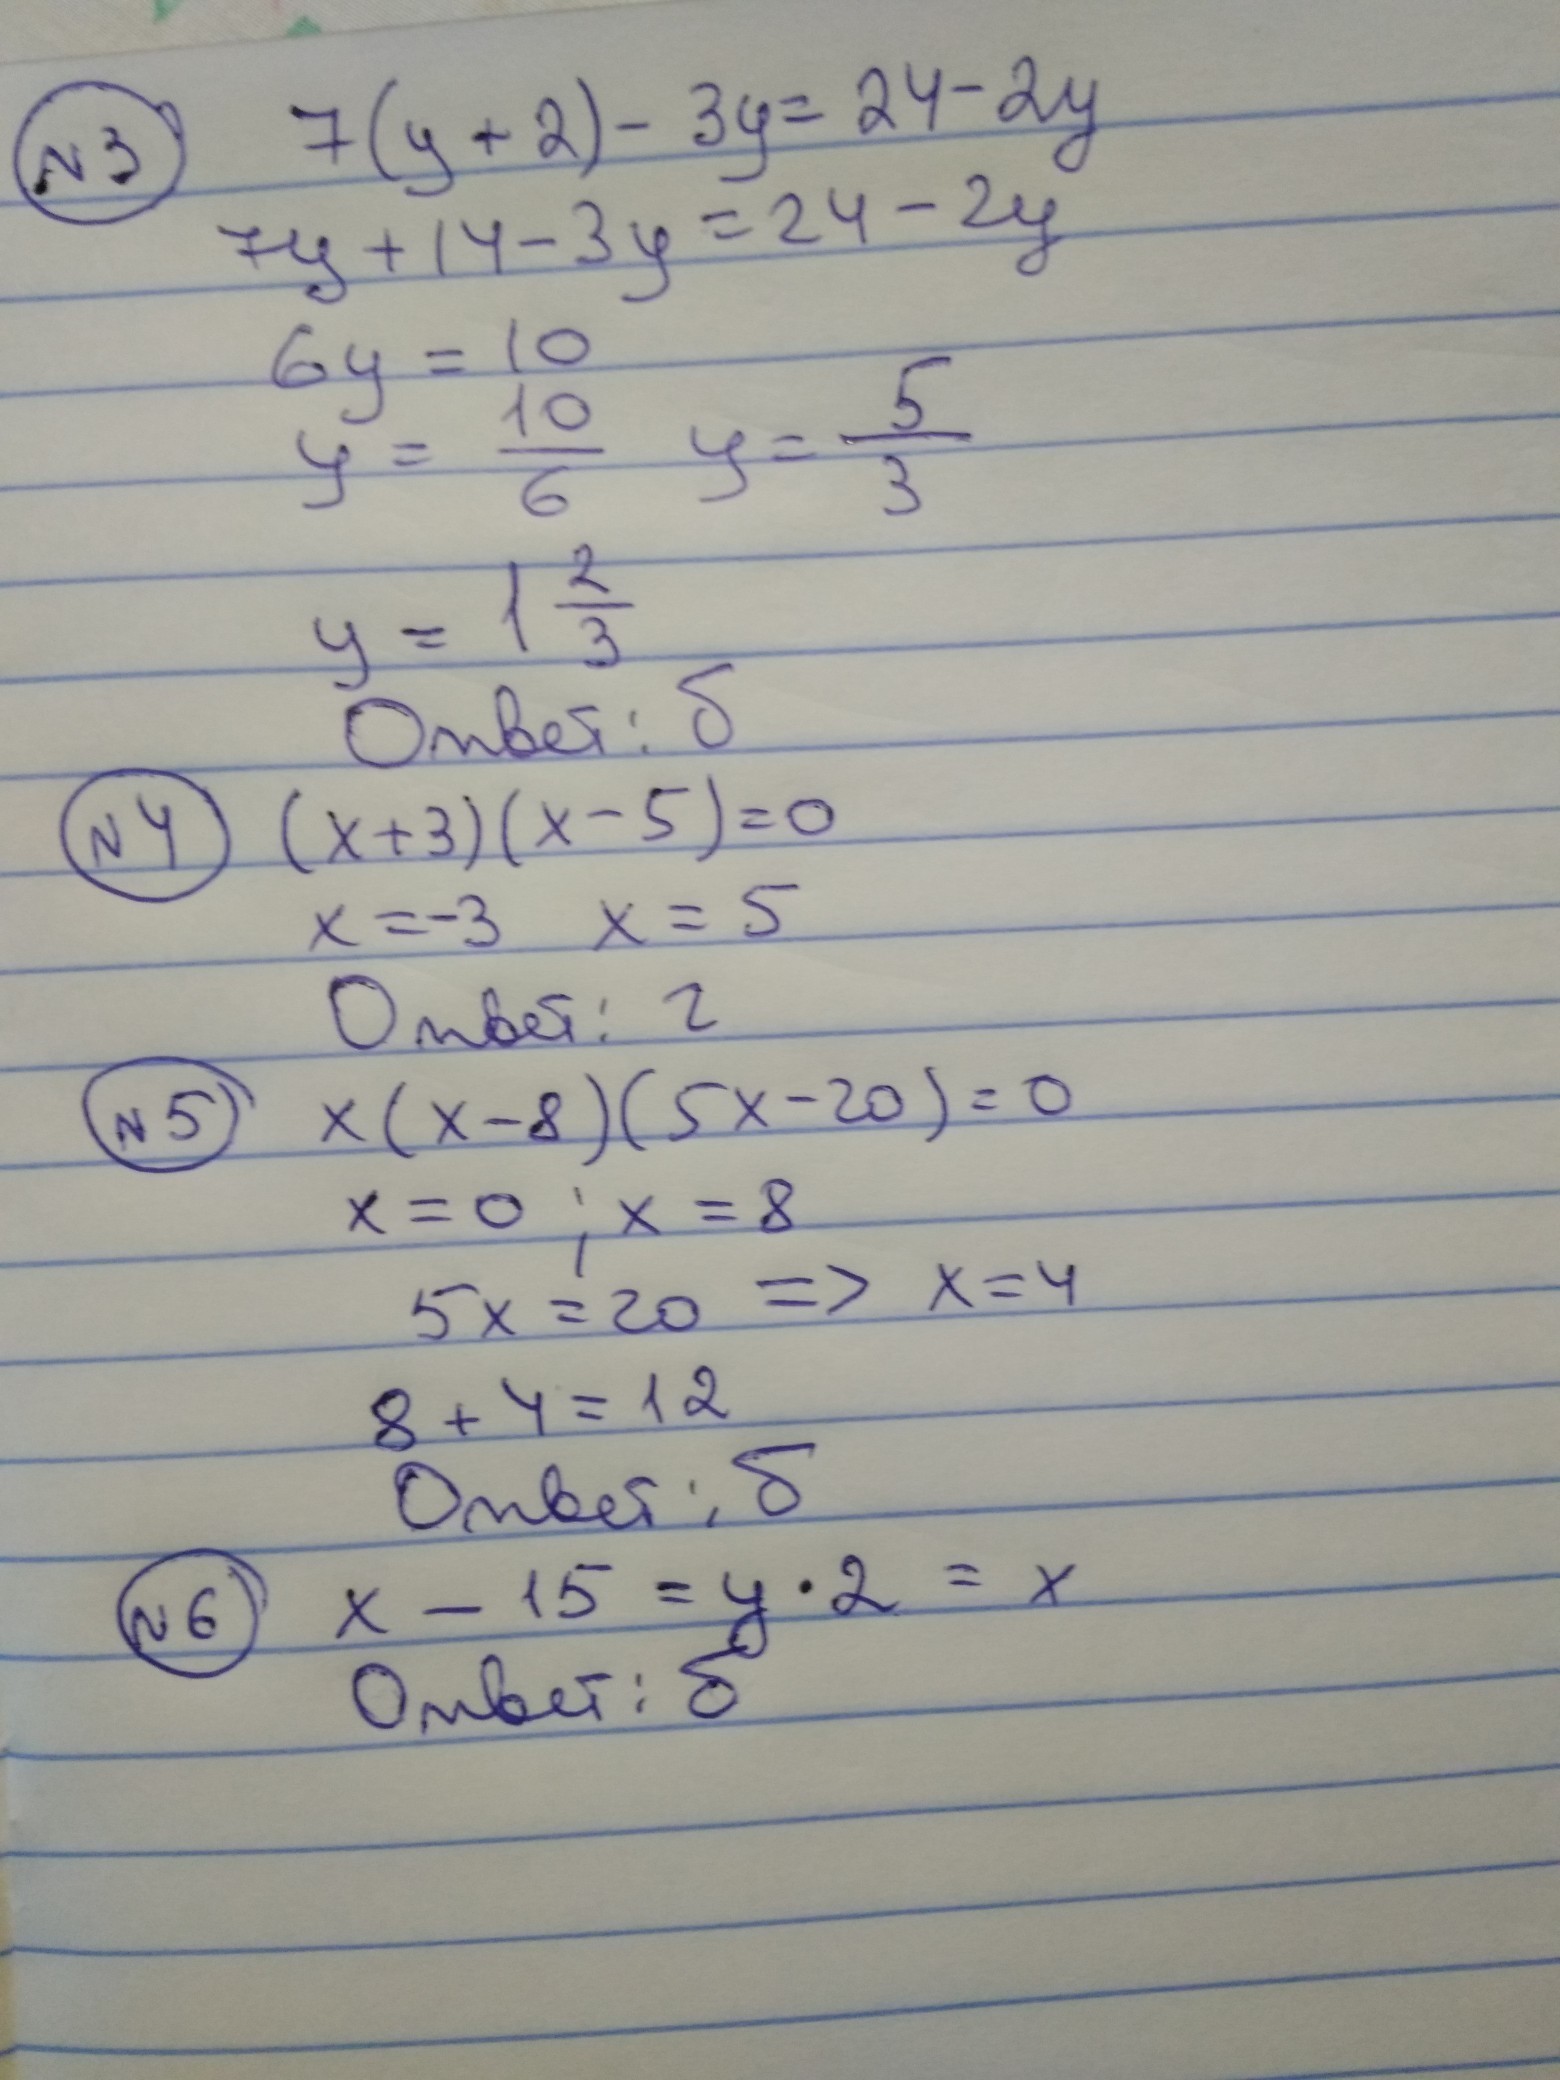 N3 7(y+2)-3y=24-2y
7y+14-3y=24-2y
6y=10
y=10/6 y=5/3
y=1 2/3
Ответ: б
N4 (x+3)(x-5)=0
x=-3 x=5
Ответ: г
N5 x(x-8)(5x-20)=0
x=0; x=8
5x=20 => x=4
8+4=12
Ответ: б
N6 x-15=y·2=x
Ответ: б